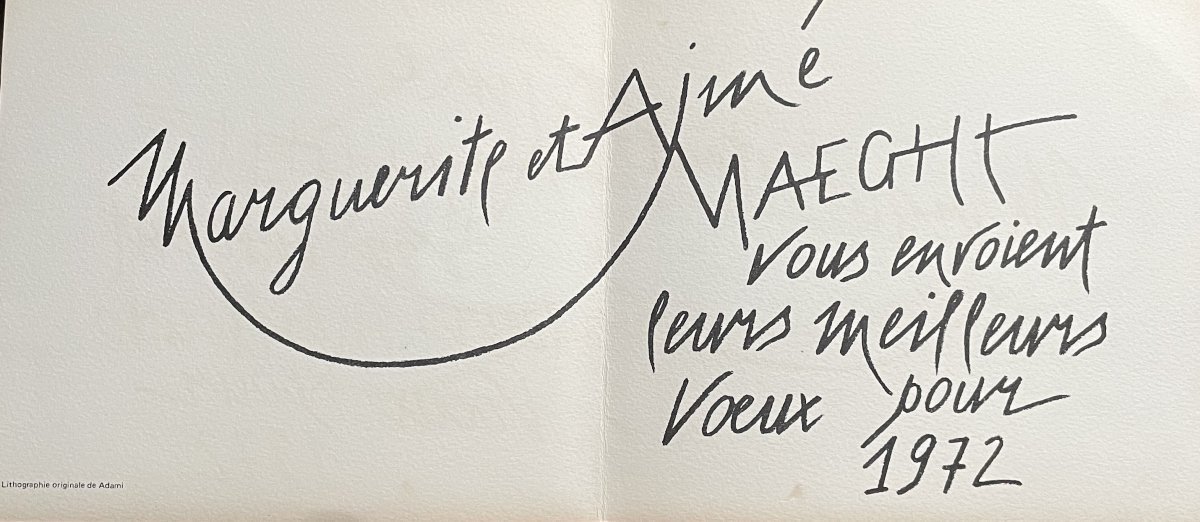 Marguerite et Aimé
MAEGHT
vous envoient
leurs meilleurs
Vœux pour
1972
Lithographie originale de Adami